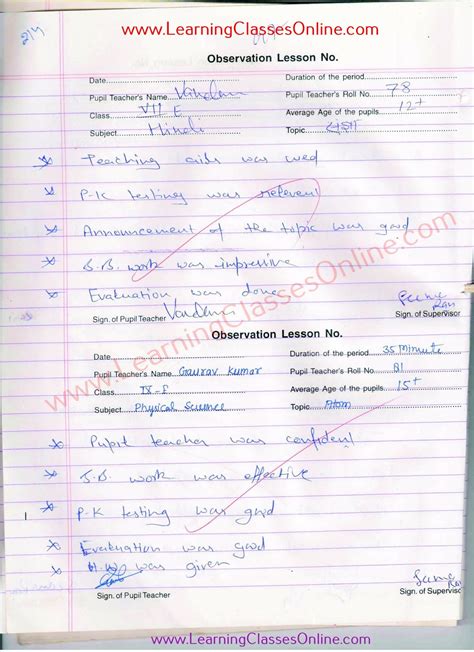 www.LearningClassesOnline.com
Observation Lesson No.
Date
Duration of the period
Pupil Teacher's Name Vandana
Pupil Teacher's Roll No. 78
Class VII E
Average Age of the pupils 12+
Subject Hindi
Topic
Teaching aids was used
P-K testing was relevent
Announcement of the topic was good
B.B. work was impressive
Evaluation was done
Sign. of Pupil Teacher Vandana
Sign. of Supervisor
www.LearningClassesOnline.com
Observation Lesson No.
Date
Duration of the period 35 Minute
Pupil Teacher's Name Gaurav Kumar
Pupil Teacher's Roll No. 81
Class IX-F
Average Age of the pupils 15+
Subject Physical Science
Topic Atom
Pupil teacher was confident
B.B. work was effective
P-K testing was good
Evaluation was good
H.W was given
Sign. of Pupil Teacher
Sign. of Supervisor
www.LearningClassesOnline.com